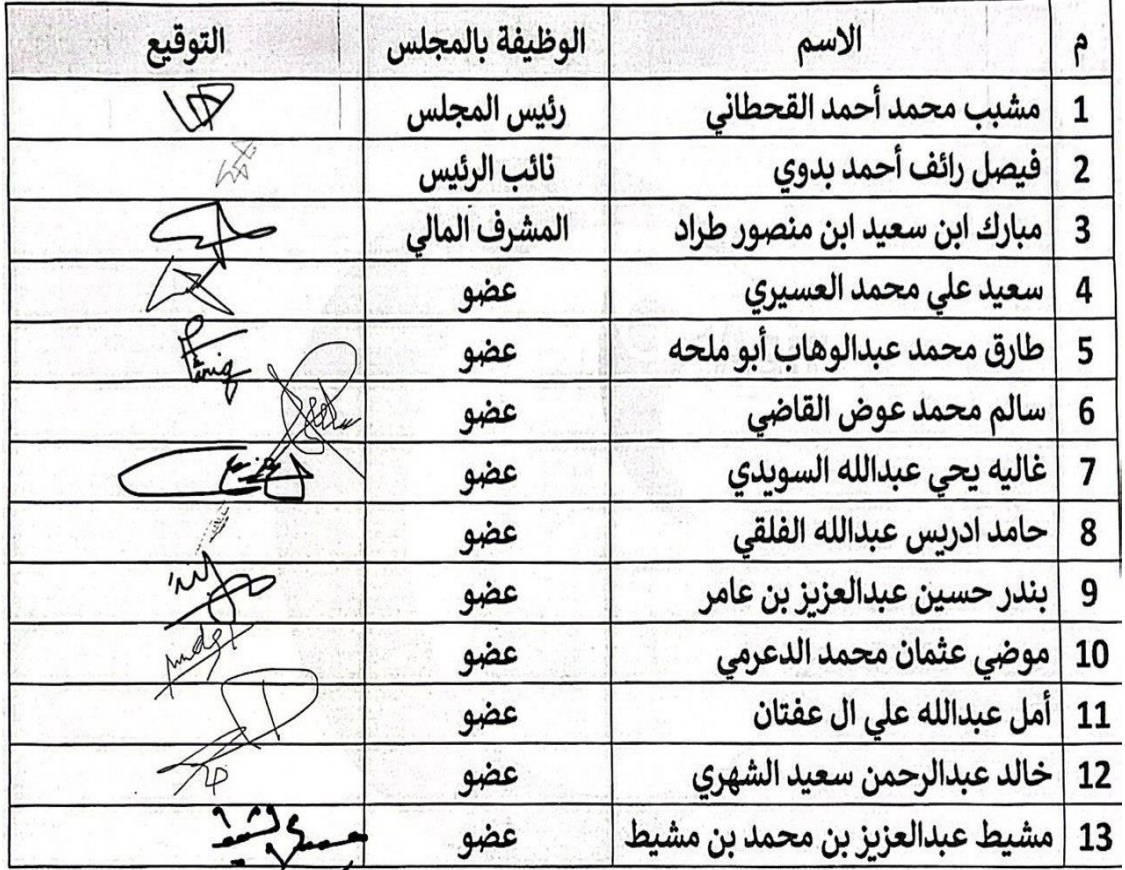 م الاسم الوظيفة بالمجلس التوقيع
1 مشبب محمد أحمد القحطاني رئيس المجلس
2 فيصل رائف أحمد بدوي نائب الرئيس
3 مبارك ابن سعيد ابن منصور طراد المشرف المالي
4 سعيد علي محمد العسيري عضو
5 طارق محمد عبدالوهاب أبو ملحه عضو Tariq
6 سالم محمد عوض القاضي عضو
7 غاليه يحي عبدالله السويدي عضو
8 حامد ادريس عبدالله الفلقي عضو
9 بندر حسين عبدالعزيز بن عامر عضو
10 موضي عثمان محمد الدعرمي عضو
11 أمل عبدالله علي ال عفتان عضو
12 خالد عبدالرحمن سعيد الشهري عضو
13 مشيط عبدالعزيز بن محمد بن مشيط عضو